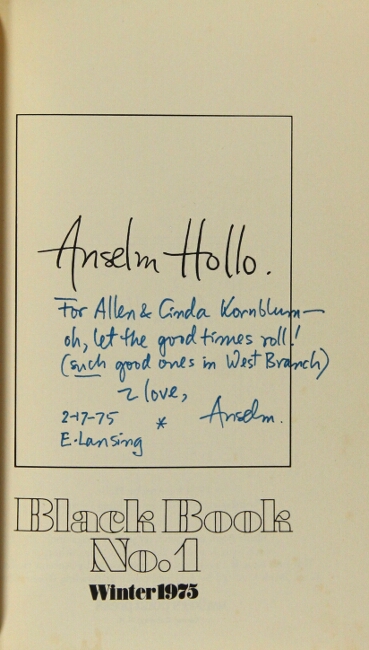 Anselm Hollo.
For Allen & Cinda Kornblum—
oh, let the good times roll!
(such good ones in West Branch)
& love,
2-17-75 * Anselm.
E. Lansing
Black Book
No. 1
Winter 1975